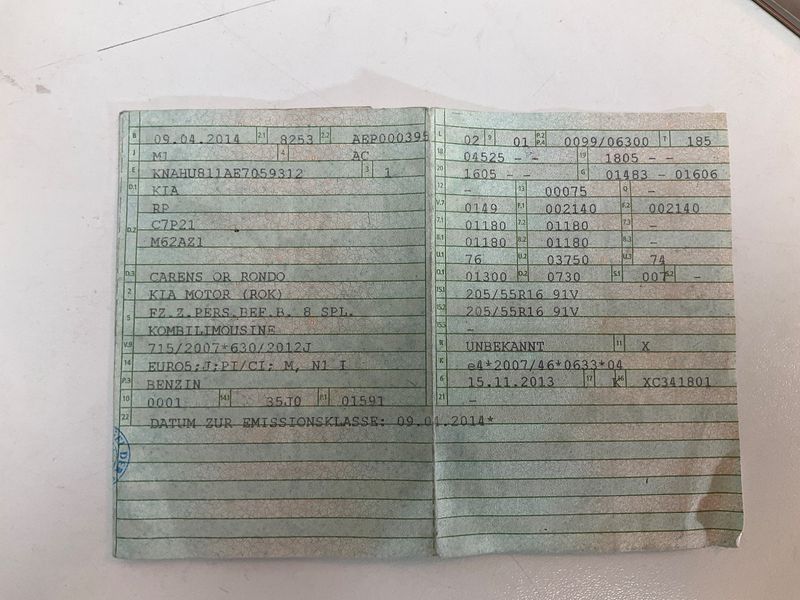 B 09.04.2014 2.1 8253 2.2 AEP000395
J M1 4 AC
E KNAHU811AE7059312 3 1
D.1 KIA
RP
D.2 C7P21
M62AZ1
D.3 CARENS OR RONDO
2 KIA MOTOR (ROK)
5 FZ.Z.PERS.BEF.B. 8 SPL.
KOMBILIMOUSINE
V.9 715/2007*630/2012J
14 EURO5;J;PI/CI; M, N1 I
P.3 BENZIN
10 0001 14.1 35J0 P.1 01591
22 DATUM ZUR EMISSIONSKLASSE: 09.01.2014*
L 02 9 01 P.2 P.4 0099/06300 T 185
18 04525 - - 19 1805 - -
20 1605 - - G 01483 - 01606
12 - 13 00075 Q -
V.7 0149 F.1 002140 F.2 002140
7.1 01180 7.2 01180 7.3 -
8.1 01180 8.2 01180 8.3 -
U.1 76 U.2 03750 U.3 74
O.1 01300 O.2 0730 S.1 007 S.2 -
15.1 205/55R16 91V
15.2 205/55R16 91V
15.3 -
R UNBEKANNT 11 X
K e4*2007/46*0633*04
6 15.11.2013 17 K 16 XC341801
21 -